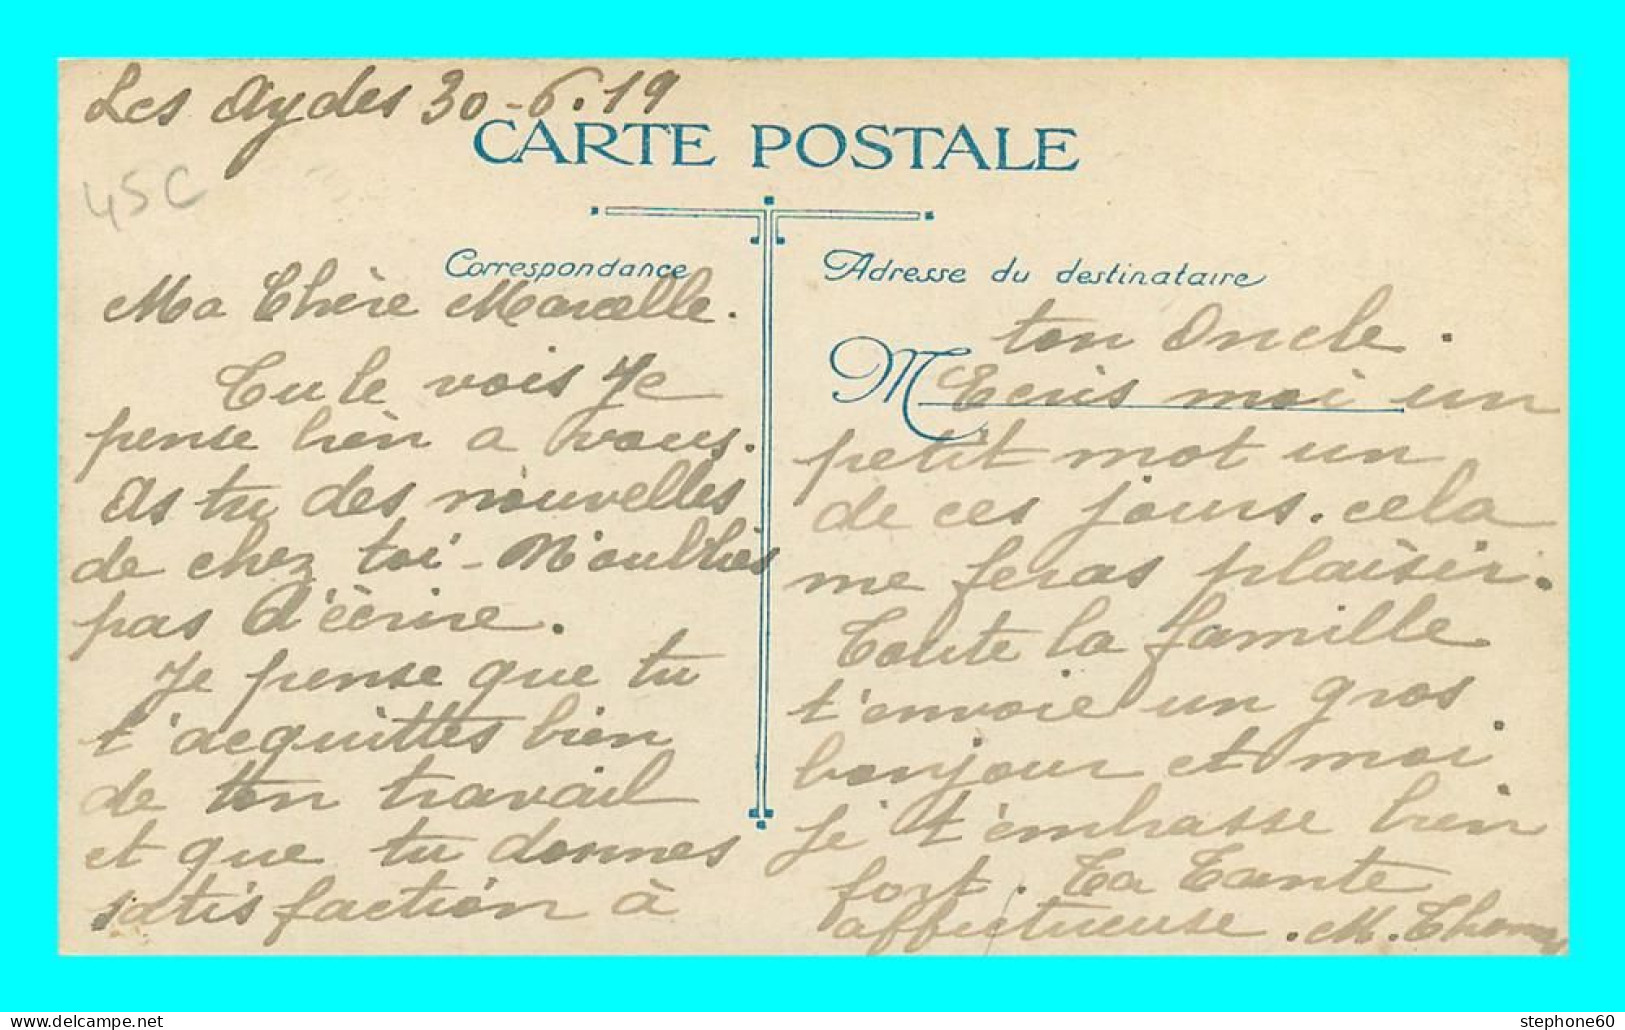 Les Aydes 30-6.19
CARTE POSTALE
45C
Correspondance
Ma Chère Marcelle.
Tu le vois je
pense bien a vous.
As tu des nouvelles
de chez toi - N'oublies
pas d'écrire.
Je pense que tu
t'acquittes bien
de ton travail
et que tu donnes
satisfaction à
Adresse du destinataire
ton Oncle.
M Ecris moi un
petit mot un
de ces jours. cela
me feras plaisir.
Toute la famille
t'envoie un gros
bonjour et moi
je t'embrasse bien
fort. Ta Tante
affectueuse. M. Thomas
stephone60